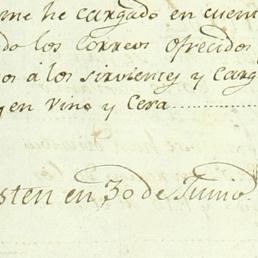 me he cargado en cuen
do los Correos ofrecidos
os á los sirvientes y carg
en vino y Cera
sten en 30 de Junio.